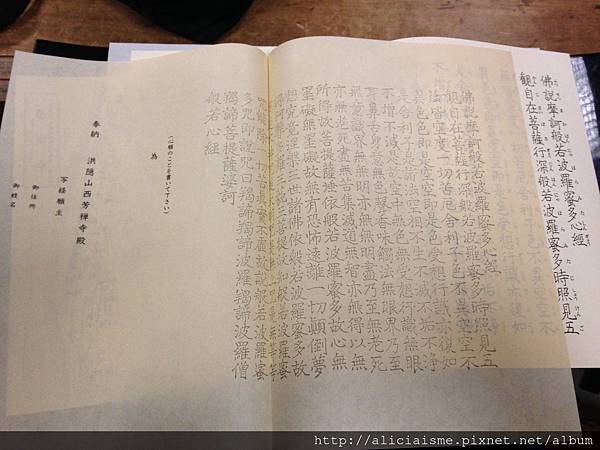 佛説摩訶般若波羅蜜多心經
観自在菩薩行深般若波羅蜜多時照見五
佛説摩訶般若波羅蜜多心經
観自在菩薩行深般若波羅蜜多時照見五
蘊皆空度一切苦厄舎利子色不異空空不
異色色即是空空即是色受想行識亦復如
是舎利子是諸法空相不生不滅不垢不浄
不増不減是故空中無色無受想行識無眼
耳鼻舌身意無色聲香味觸法無眼界乃至
無意識界無無明亦無無明盡乃至無老死
亦無老死盡無苦集滅道無智亦無得以無
所得故菩提薩埵依般若波羅蜜多故心無
罣礙無罣礙故無有恐怖遠離一切顛倒夢
想究竟涅槃三世諸佛依般若波羅蜜多故
得阿耨多羅三藐三菩提故知般若波羅蜜
多是大神咒是大明咒是無上咒是無等等
咒能除一切苦真實不虚故説般若波羅蜜
多咒即説咒曰羯諦羯諦波羅羯諦波羅僧
羯諦菩提薩婆訶
般若心經
(心願のことを書いて下さい)
為
奉納 洪隠山西芳禅寺殿
写経願主
御住所
御姓名
http://aliciaisme.pixnet.net/album